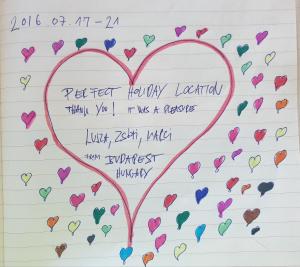 2016.07.17-21
PERFECT HOLIDAY LOCATION
THANK YOU! IT WAS A PLEASURE
LUCA, ZSÓFI, MARCI
FROM BUDAPEST
HUNGARY